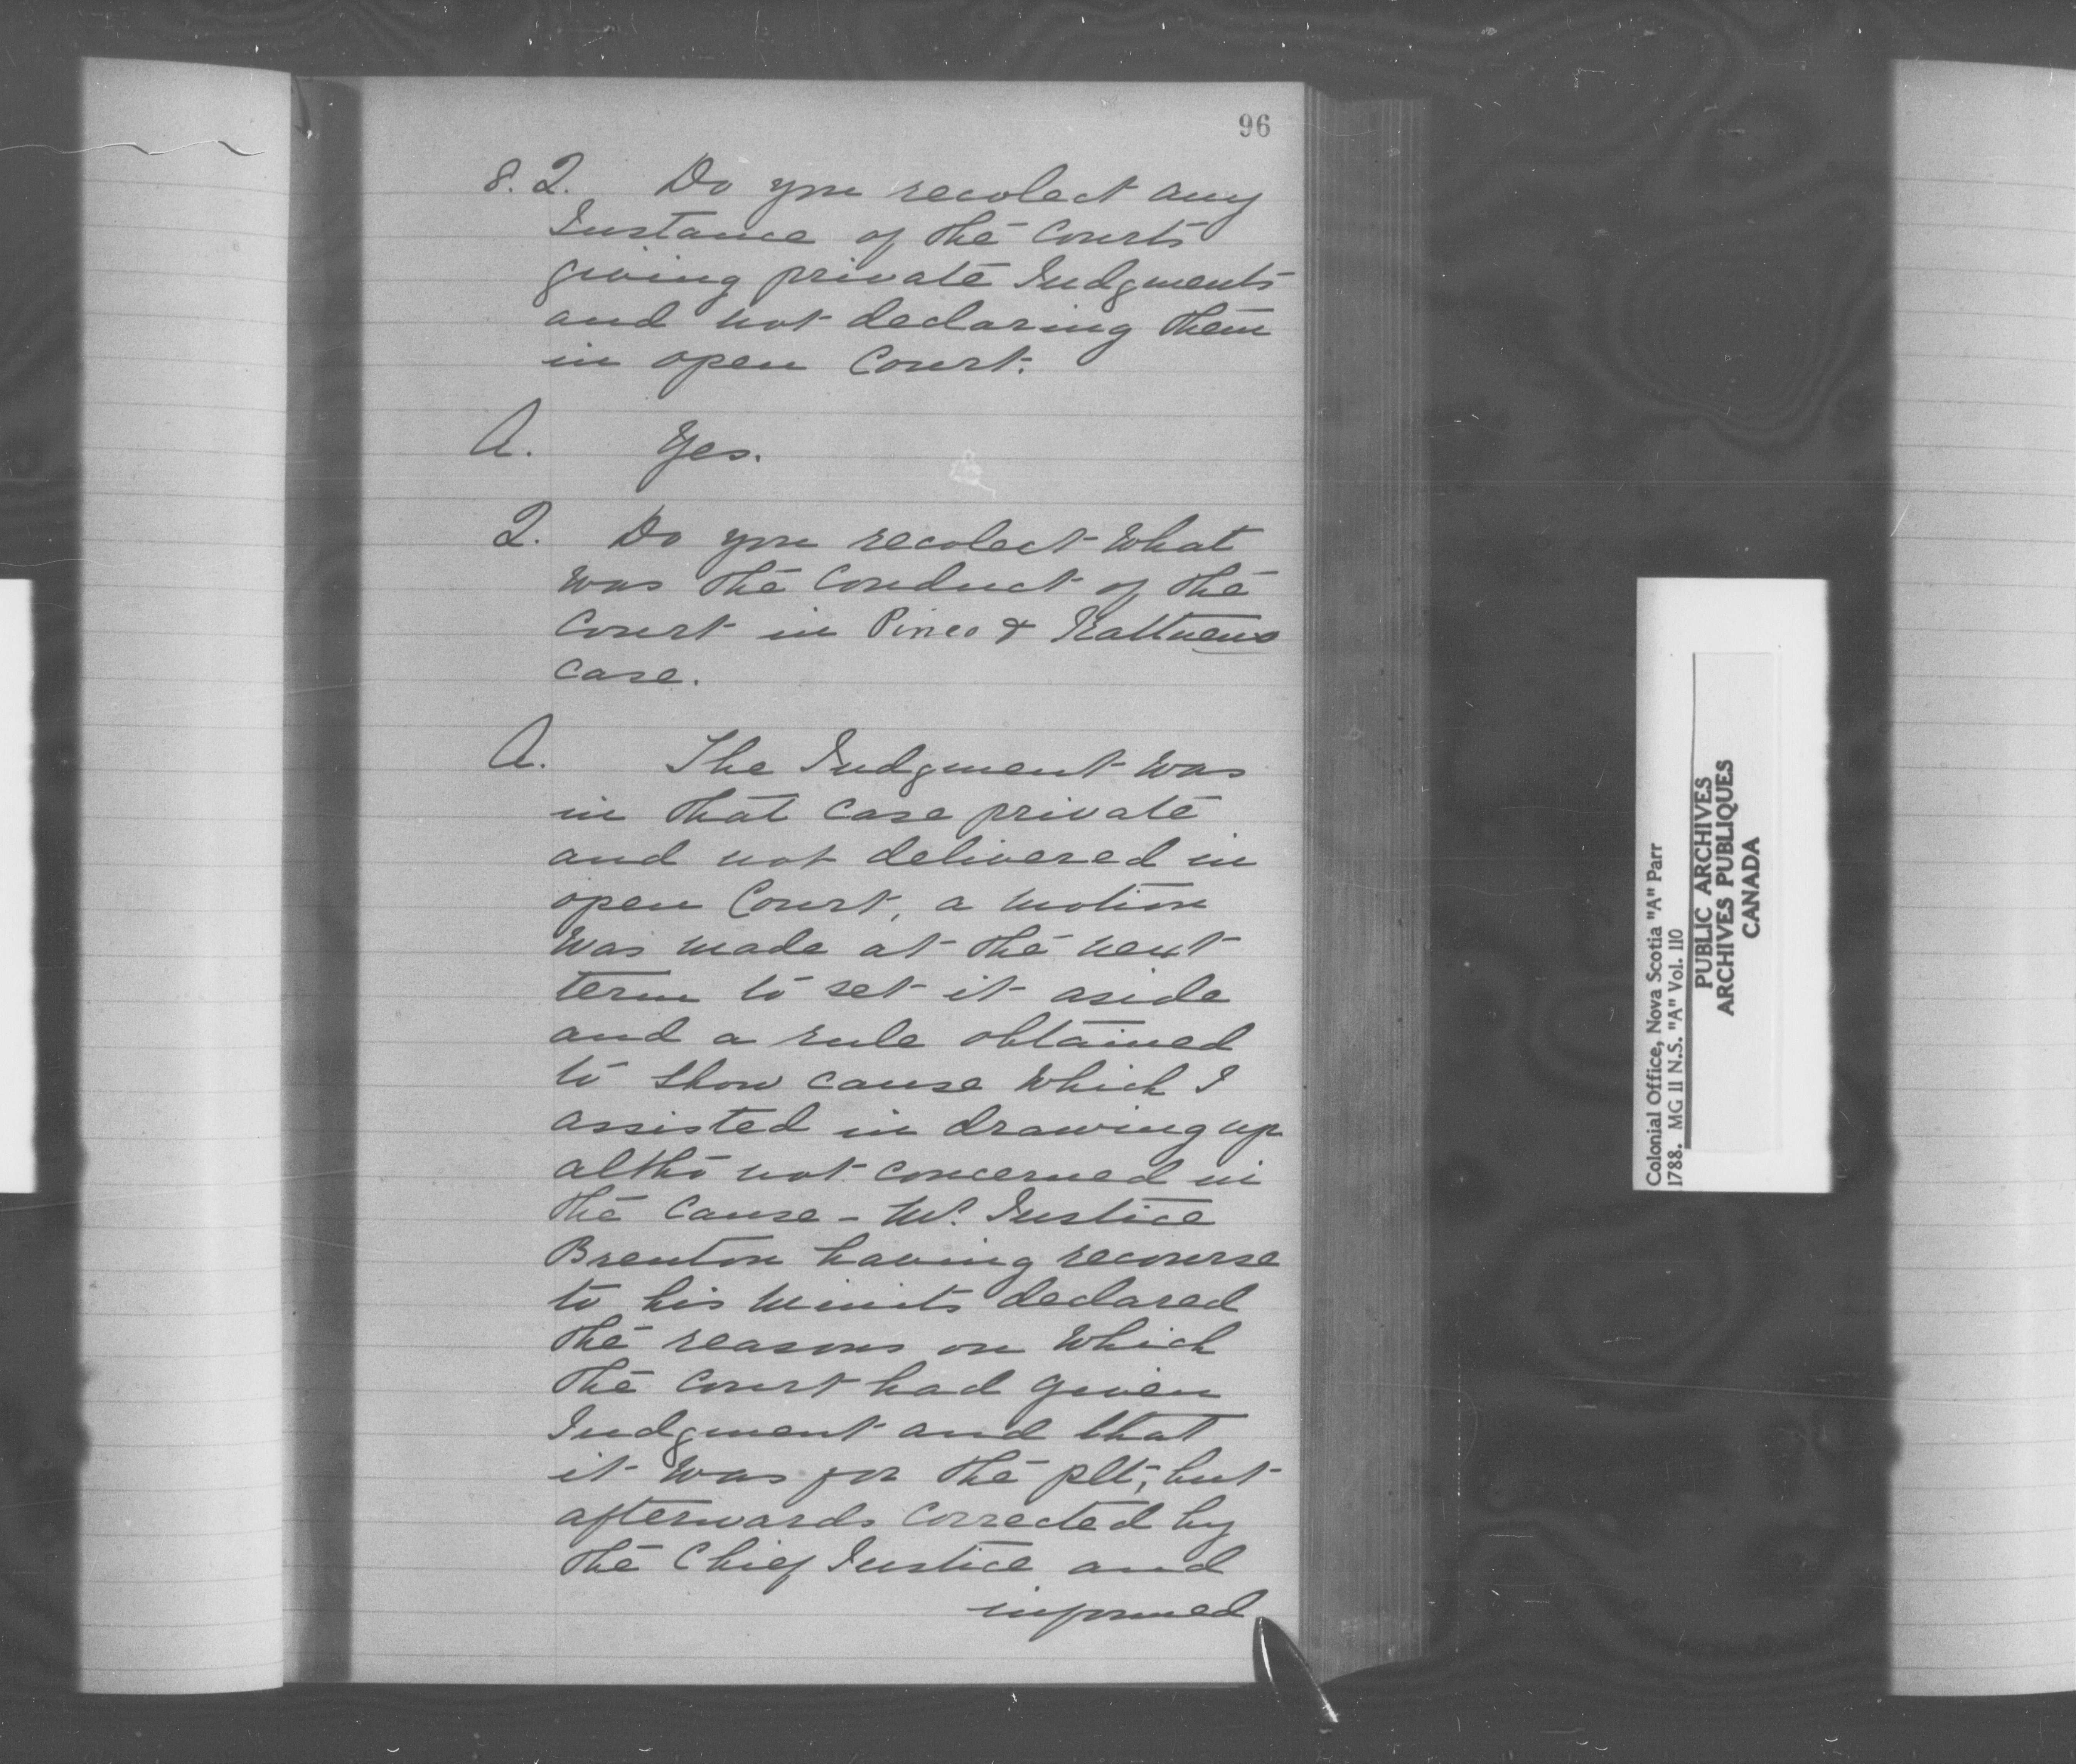 96
8. Q. Do you recolect any
Instance of the Courts
giving private Judgments
and not declaring them
in open Court.
A. Yes.
Q. Do you recolect What
was the Conduct of the
Court in Pineo &
case.
A. The Judgment was
in that case private
and not delivered in
open Court, a motion
Was made at the next
term to set it aside
and a rule obtained
to show cause which I
assisted in drawing up
altho not concerned in
the Cause - Mr. Justice
Brenton having recourse
to his minits declared
the reasons on Which
the Court had given
Judgment and that
it was for the plt; but
afterwards corrected by
the Chief Justice and
informed
Colonial Office, Nova Scotia "A" Parr
1788. MG 11 N.S. "A" Vol. 110
PUBLIC ARCHIVES
ARCHIVES PUBLIQUES
CANADA